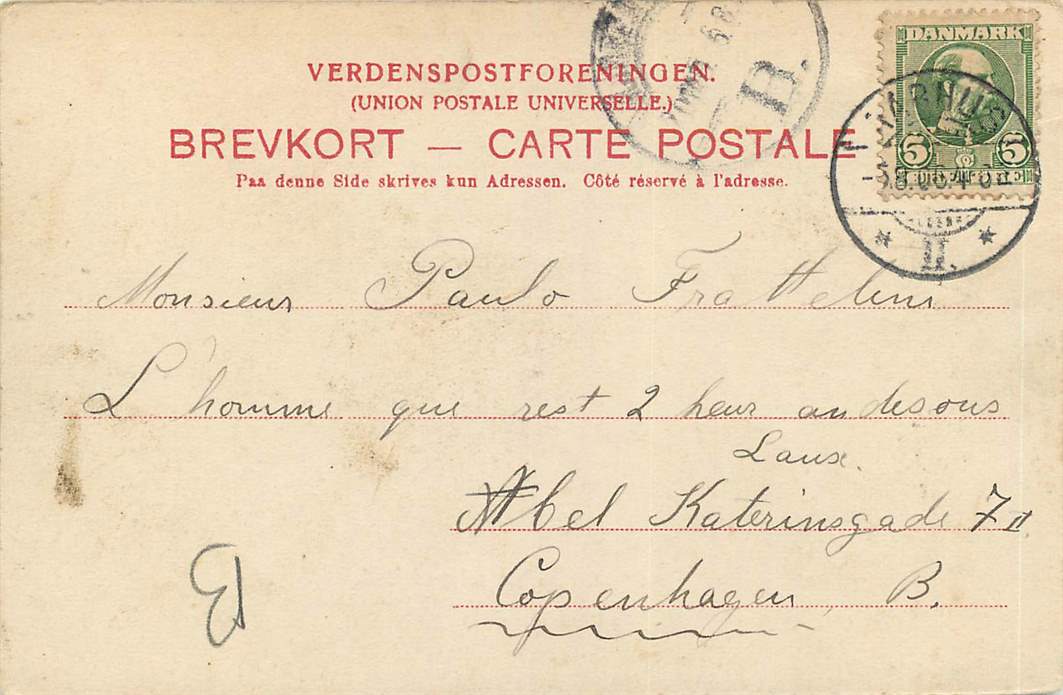 DANMARK
5 5
VERDENSPOSTFORENINGEN.
(UNION POSTALE UNIVERSELLE.)
BREVKORT — CARTE POSTALE
Paa denne Side skrives kun Adressen. Côté réservé à l'adresse.
AARHUS
B.
II.
Monsieur Paulo Frattelini
L'homme que rest 2 heur andesous
Laux.
Abel Katerinsgade 7 II
Copenhagen, B.